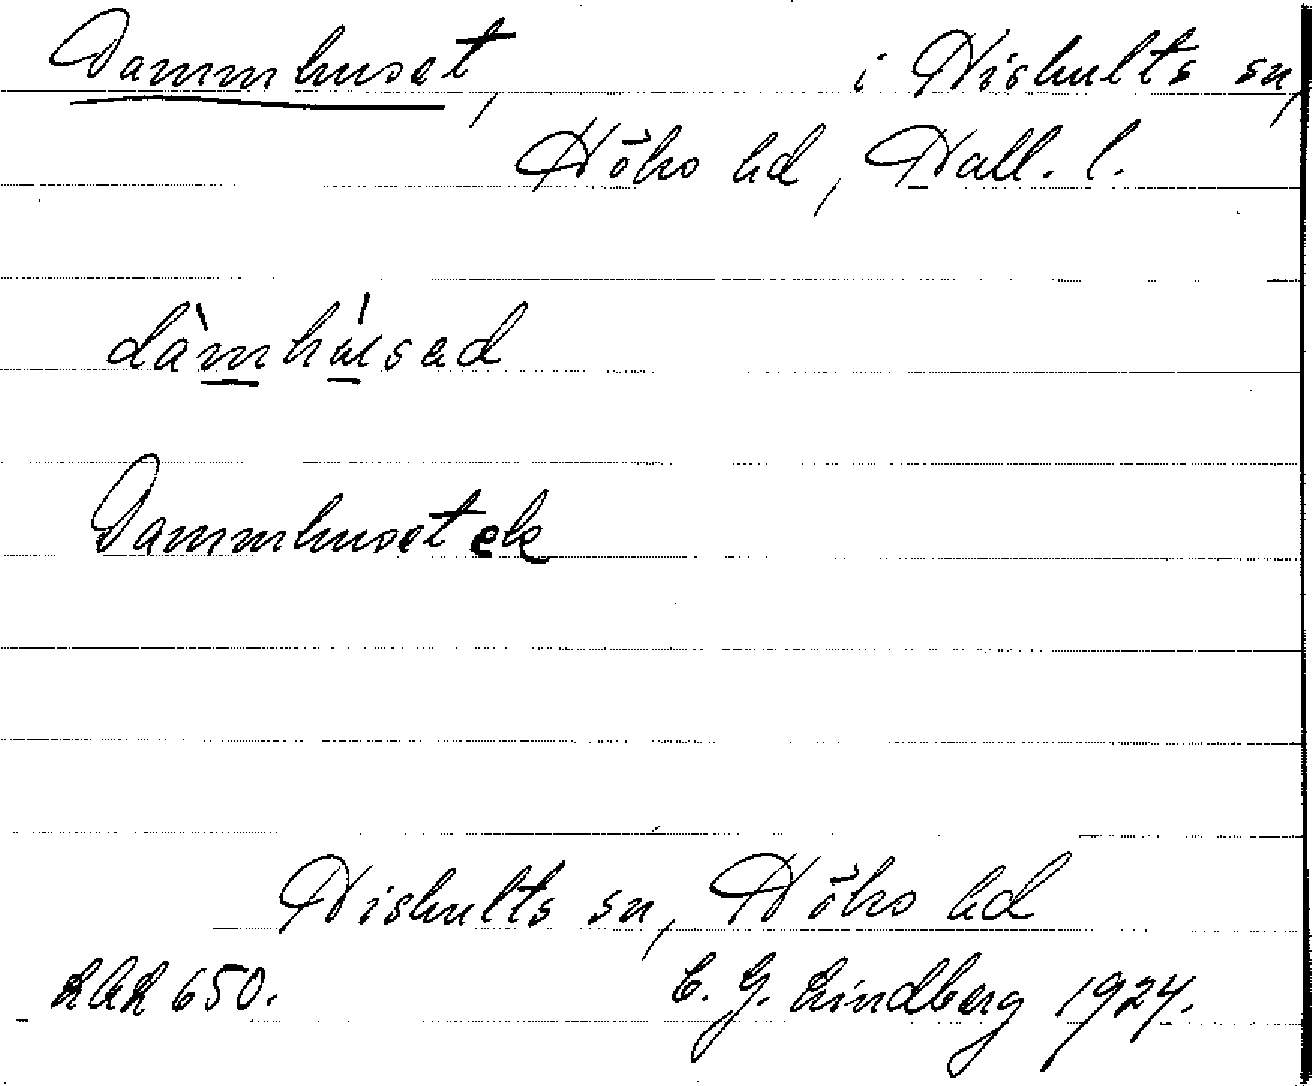 Dammhuset, i Hishults sn,
Höks hd, Hall. l.
dàmhúsad
Dammhuset ek
Hishults sn, Höks hd
LAL 650. C. G. Lindberg 1924.